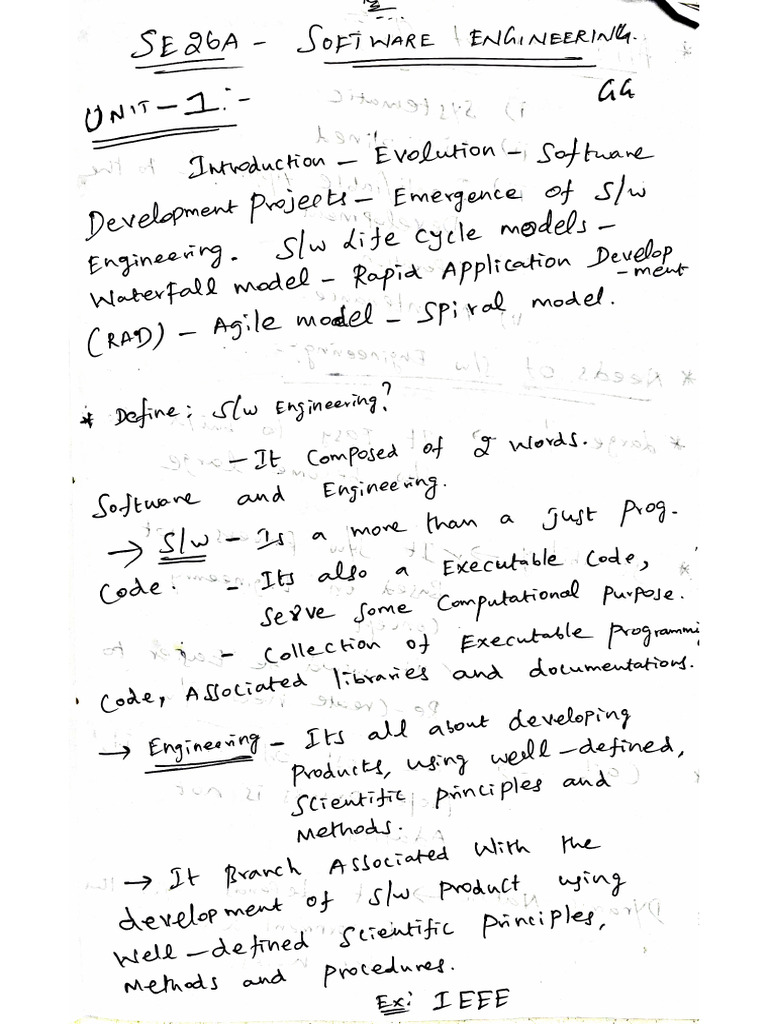 SE26A - SOFTWARE ENGINEERING.
GG
UNIT-1:-
Introduction - Evolution - Software
Development Projects - Emergence of S/w
Engineering. S/w Life cycle models -
Waterfall model - Rapid Application Develop
-ment
(RAD) - Agile model - Spiral model.
* Define: S/w Engineering?
- It Composed of 2 words.
Software and Engineering.
→ S/w - Is a more than a just prog.
Code. - Its also a Executable Code,
serve some computational purpose.
- Collection of Executable programmi
Code, Associated libraries and documentations.
→ Engineering - Its all about developing
products, using well-defined,
scientific principles and
methods.
→ It Branch Associated with the
development of s/w product using
well-defined scientific principles,
methods and procedures.
Ex: IEEE